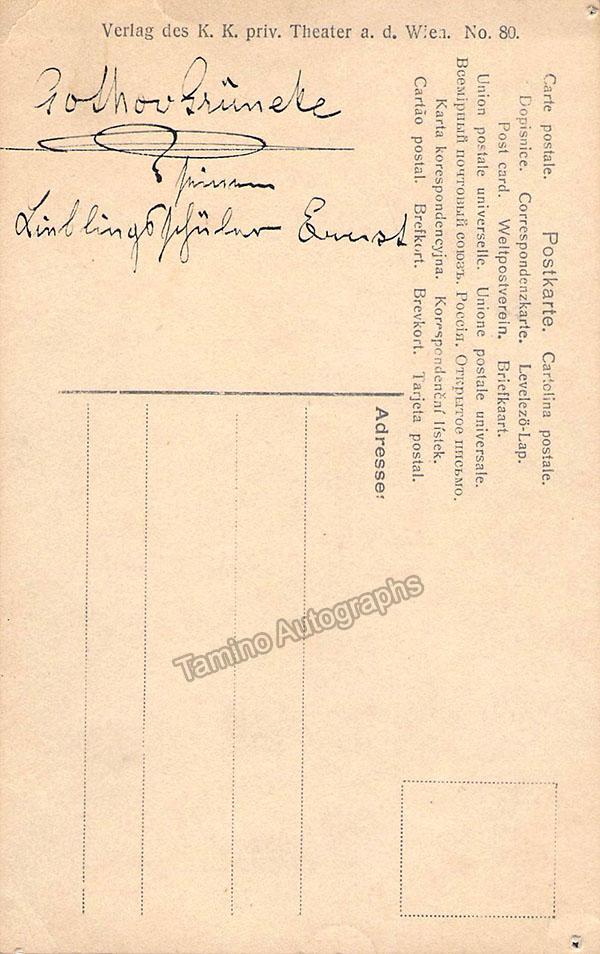 Verlag des K. K. priv. Theater a. d. Wien. No. 80.
Gothov Grüneke
seinem
Lieblingsschüler Ernst
Carte postale. Postkarte. Cartolina postale.
Dopisnice. Correspondenzkarte. Levelező-Lap.
Post card. Weltpostverein. Briefkaart.
Union postale universelle. Unione postale universale.
Всемірный почтовый союзъ. Россія. Открытое письмо.
Karta korespondencyjna. Korespondenční lístek.
Cartão postal. Brefkort. Brevkort. Tarjeta postal.
Adresse:
Tamino Autographs